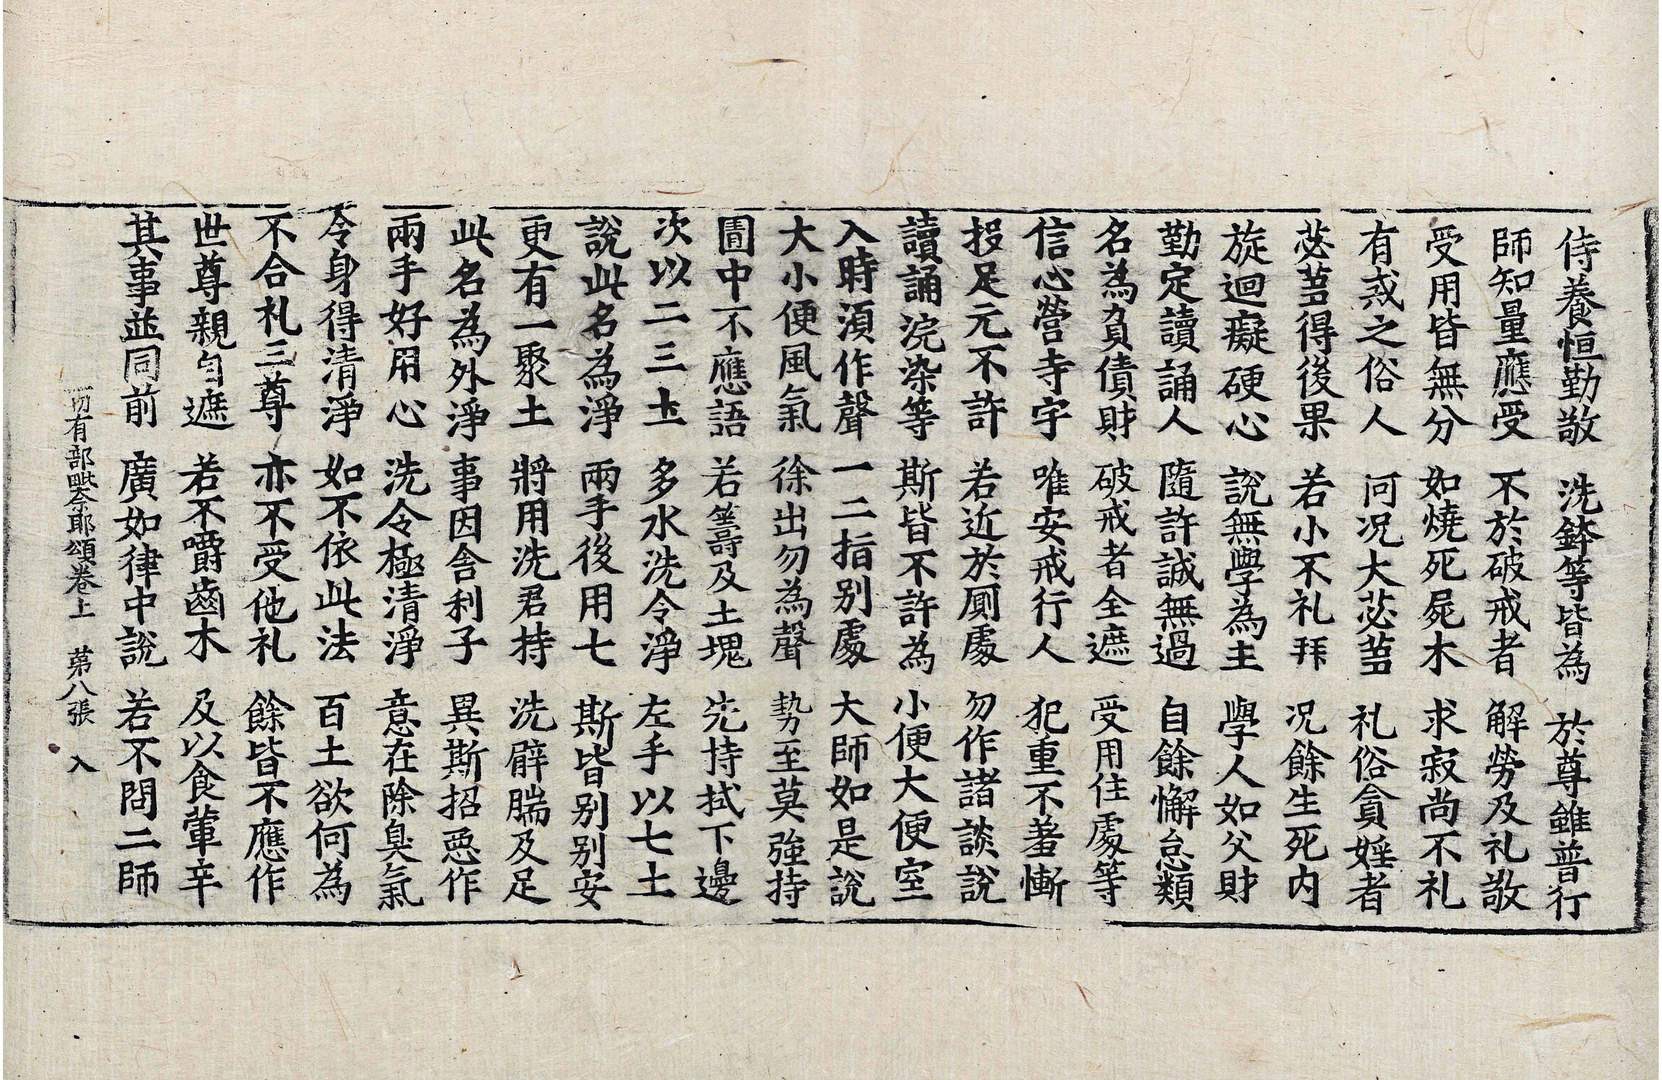 侍養恒勤敬 洗鉢等皆為 於尊雖普行
師知量應受 不於破戒者 解勞及礼敬
受用皆無分 如燒死屍木 求寂尚不礼
有戒之俗人 何况大苾蒭 礼俗貪婬者
苾蒭得後果 若小不礼拜 况餘生死内
旋迴癡硬心 說無學為主 學人如父財
勤定讀誦人 隨許誠無過 自餘懈怠類
名為負債財 破戒者全遮 受用住處等
信心營寺宇 唯安戒行人 犯重不羞慚
投足元不許 若近於厠處 勿作諸談說
讀誦浣染等 斯皆不許為 小便大便室
入時湏作聲 一二指别處 大師如是說
大小便風氣 徐出勿為聲 勢至莫強持
圊中不應語 若籌及土塊 先持拭下邊
次以二三土 多水洗令淨 左手以七土
說此名為淨 兩手後用七 斯皆别别安
更有一聚土 將用洗君持 洗腨及足
此名為外淨 事因舍利子 異斯招惡作
兩手好用心 洗令極清淨 意在除臭氣
令身得清淨 如不依此法 百土欲何為
不合礼三尊 亦不受他礼 餘皆不應作
世尊親自遮 若不嚼齒木 及以食葷辛
其事並同前 廣如律中說 若不問二師
一切有部毗奈耶頌卷上 第八張 入